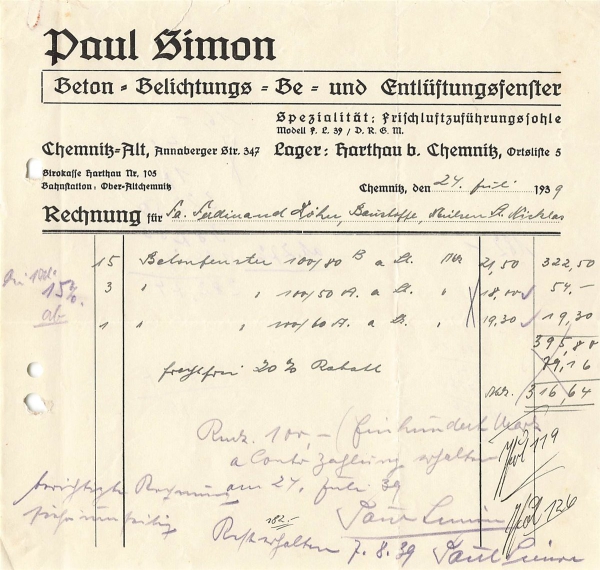 Paul Simon
Beton - Belichtungs - Be - und Entlüftungsfenster
Spezialität: Frischluftzuführungssohle
Modell P. L. 39 / D. R. G. M.
Chemnitz-Alt, Annaberger Str. 347 Lager: Harthau b. Chemnitz, Ortsliste 5
Girokasse Harthau Nr. 105
Bahnstation: Ober-Altchemnitz
Chemnitz, den 24. Juli 1939
Rechnung für Fa. Ferdinand Baustoffe, St. Nicklas
15 Betonfenster 100/80 B a St. Mk 21,50 322,50
3 " " 100/50 A. a St. " 18,00 54,-
1 " " 100/60 A. a St. " 19,30 19,30
395,80
frachtfrei 20% Rabatt 79,16
Mk. 316,64
15%
ab
Rmk. 100,- (Einhundert Mark
a Conto Zahlung erhalten
am 24. Juli 39
Paul Simon
berichtigte Rechnung
siehe umseitig
182.-
Rest erhalten 7.8.39 Paul Simon
119
126